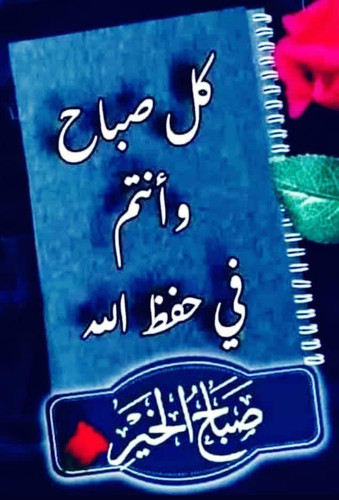 كل صباح
وأنتم
في حفظ الله
صباح الخير